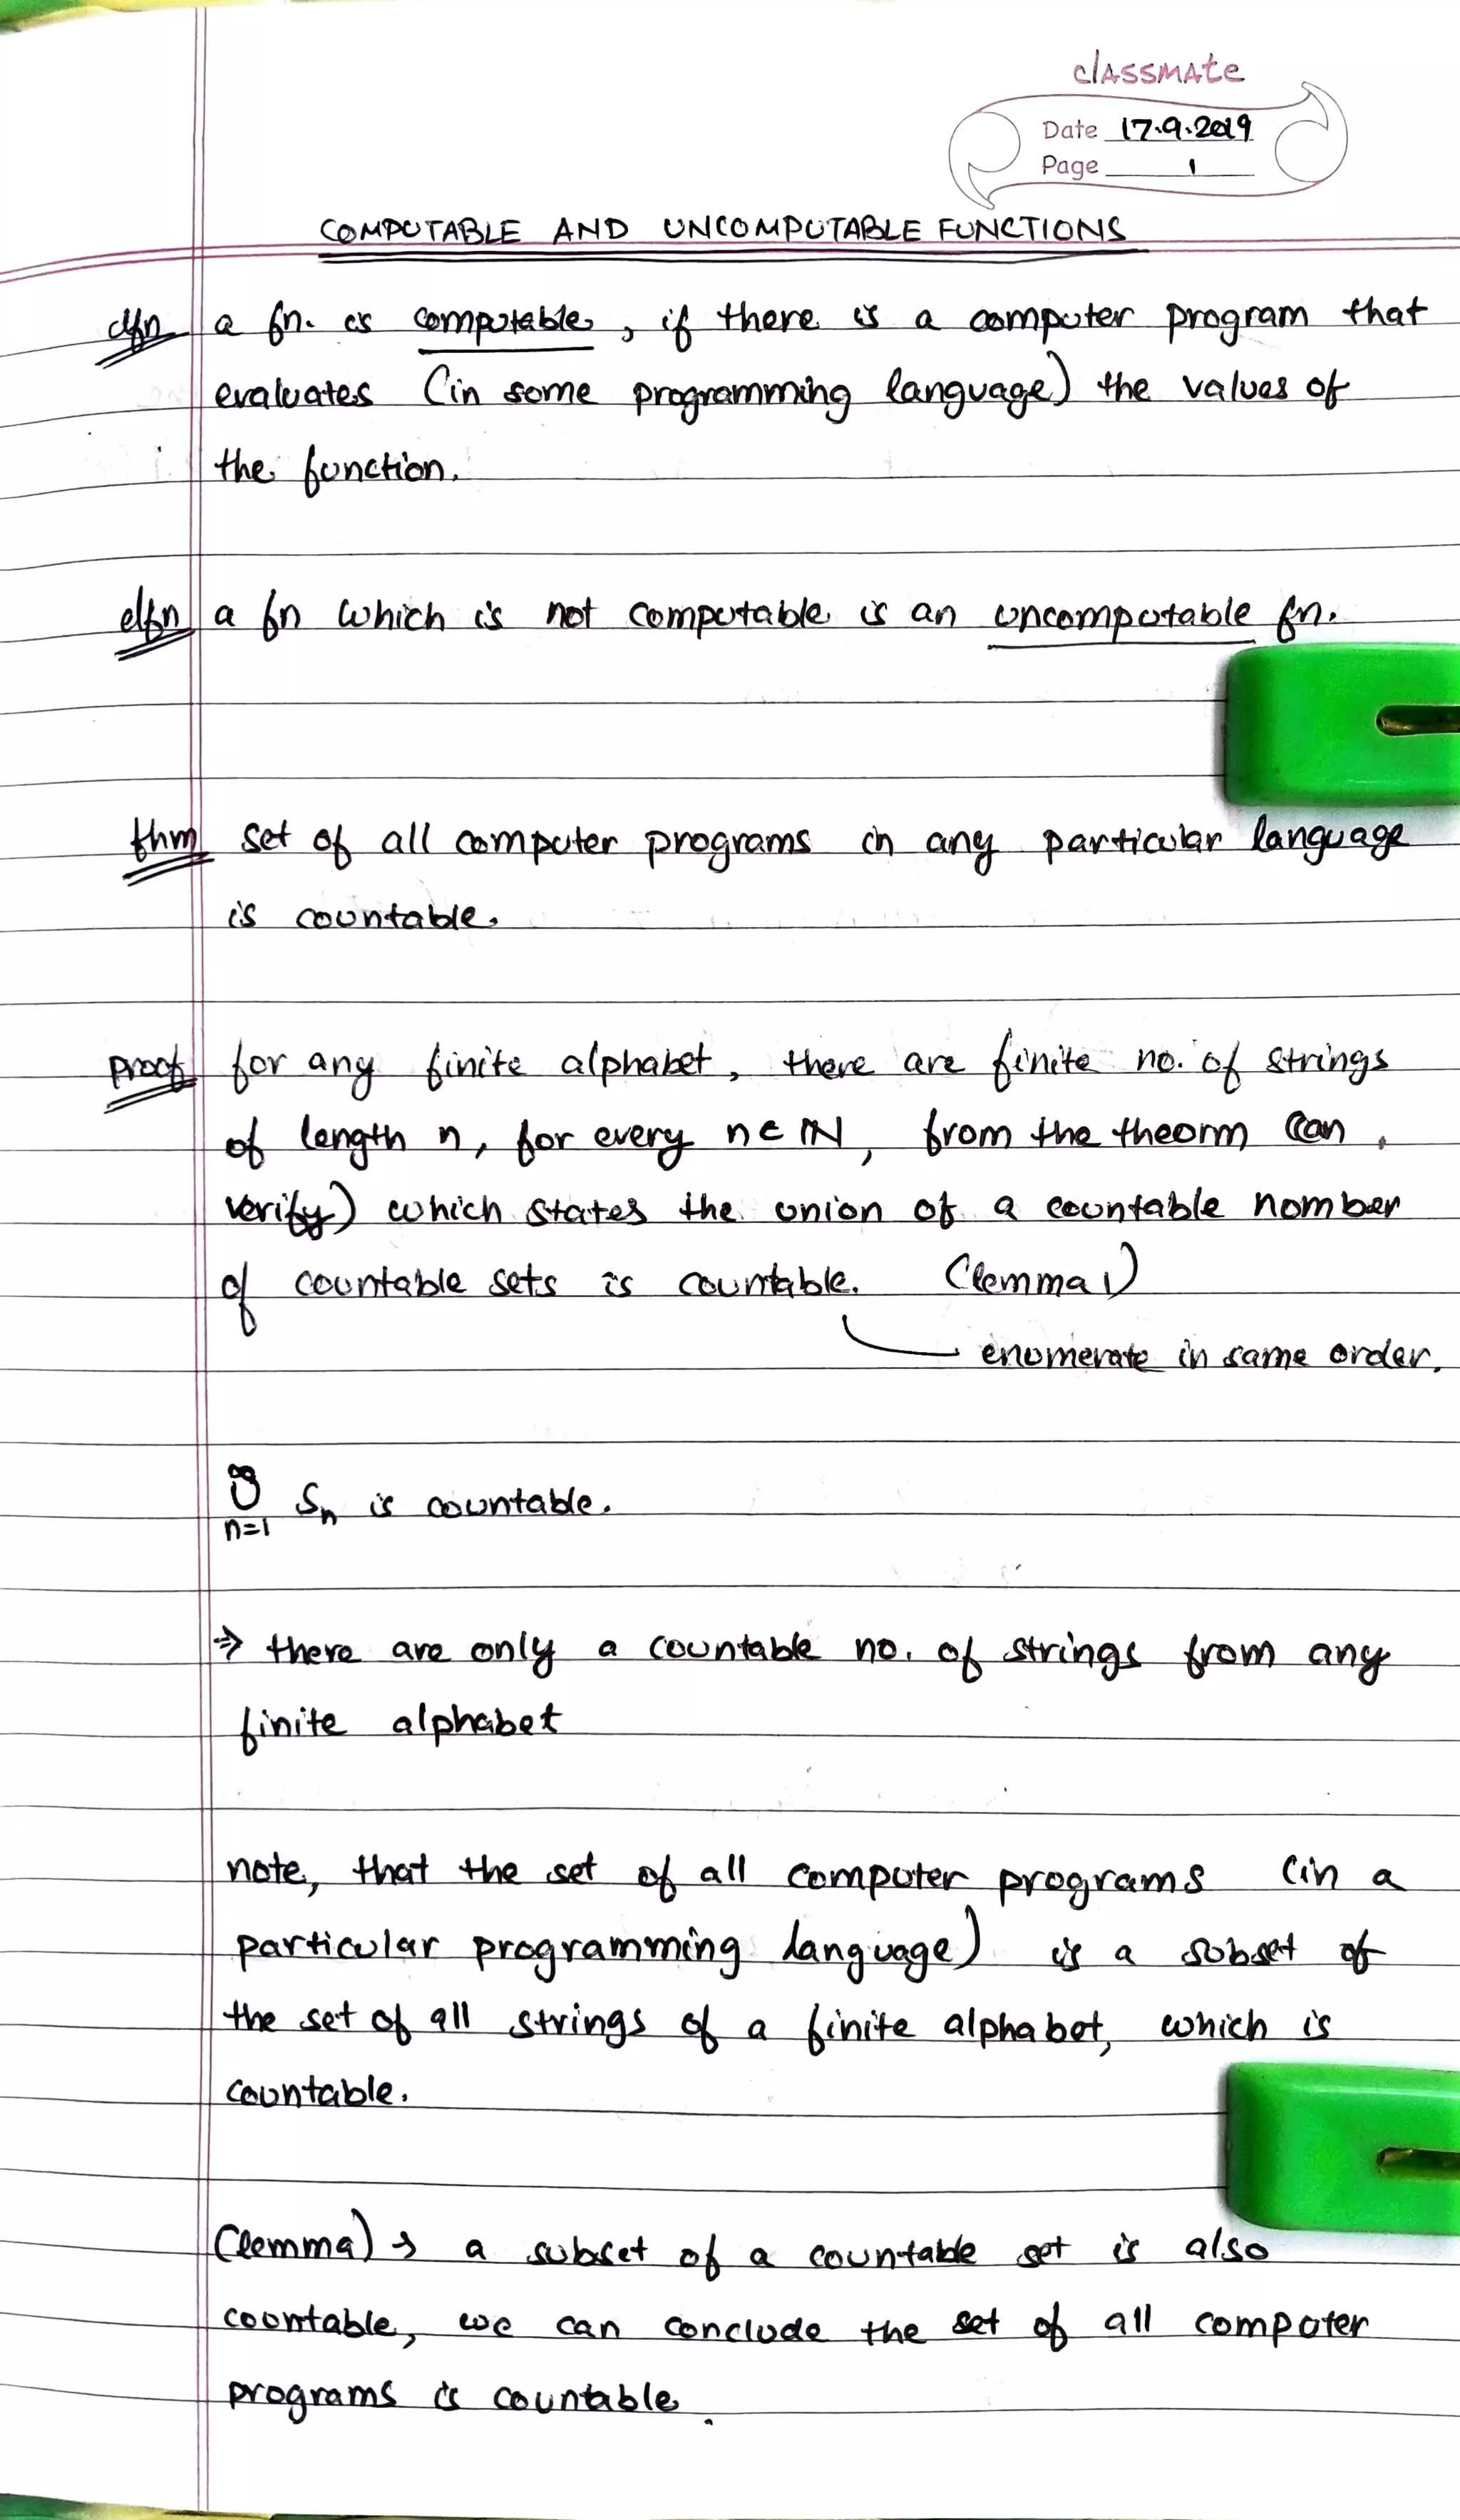 classmate
Date 17.9.2019
Page 1
COMPUTABLE AND UNCOMPUTABLE FUNCTIONS
dfn a fn. is computable, if there is a computer program that
evaluates (in some programming language) the values of
the function.
dfn a fn which is not computable is an uncomputable fn.
thm set of all computer programs in any particular language
is countable.
proof for any finite alphabet, there are finite no. of strings
of length n, for every n ∈ ℕ, from the theorm (can
verify) which states the union of a countable number
of countable sets is countable. (lemma 1)
enumerate in same order.
∞
∪ Sn is countable.
n=1
⇒ there are only a countable no. of strings from any
finite alphabet
note, that the set of all computer programs (in a
particular programming language) is a subset of
the set of all strings of a finite alphabet, which is
countable.
(lemma) → a subset of a countable set is also
countable, we can conclude the set of all computer
programs is countable.